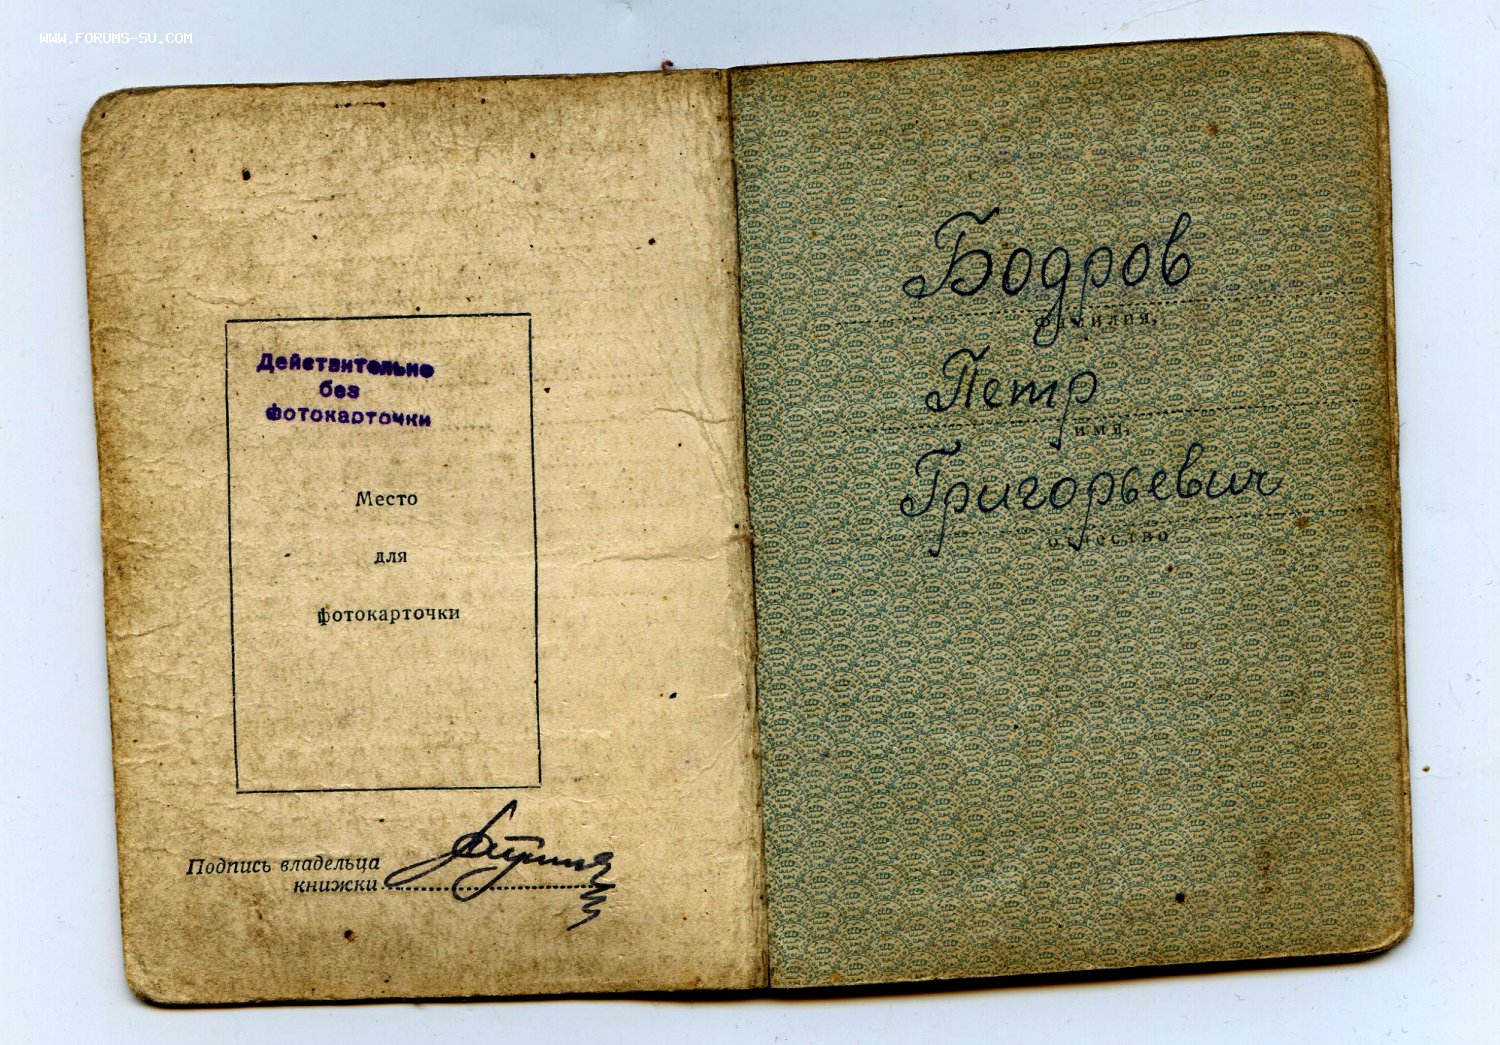 WWW.FORUMS-SU.COM
Действительно
без
фотокарточки
Место
для
фотокарточки
Подпись владельца
книжки
Бодров
фамилия,
Петр
имя,
Григорьевич
отчество